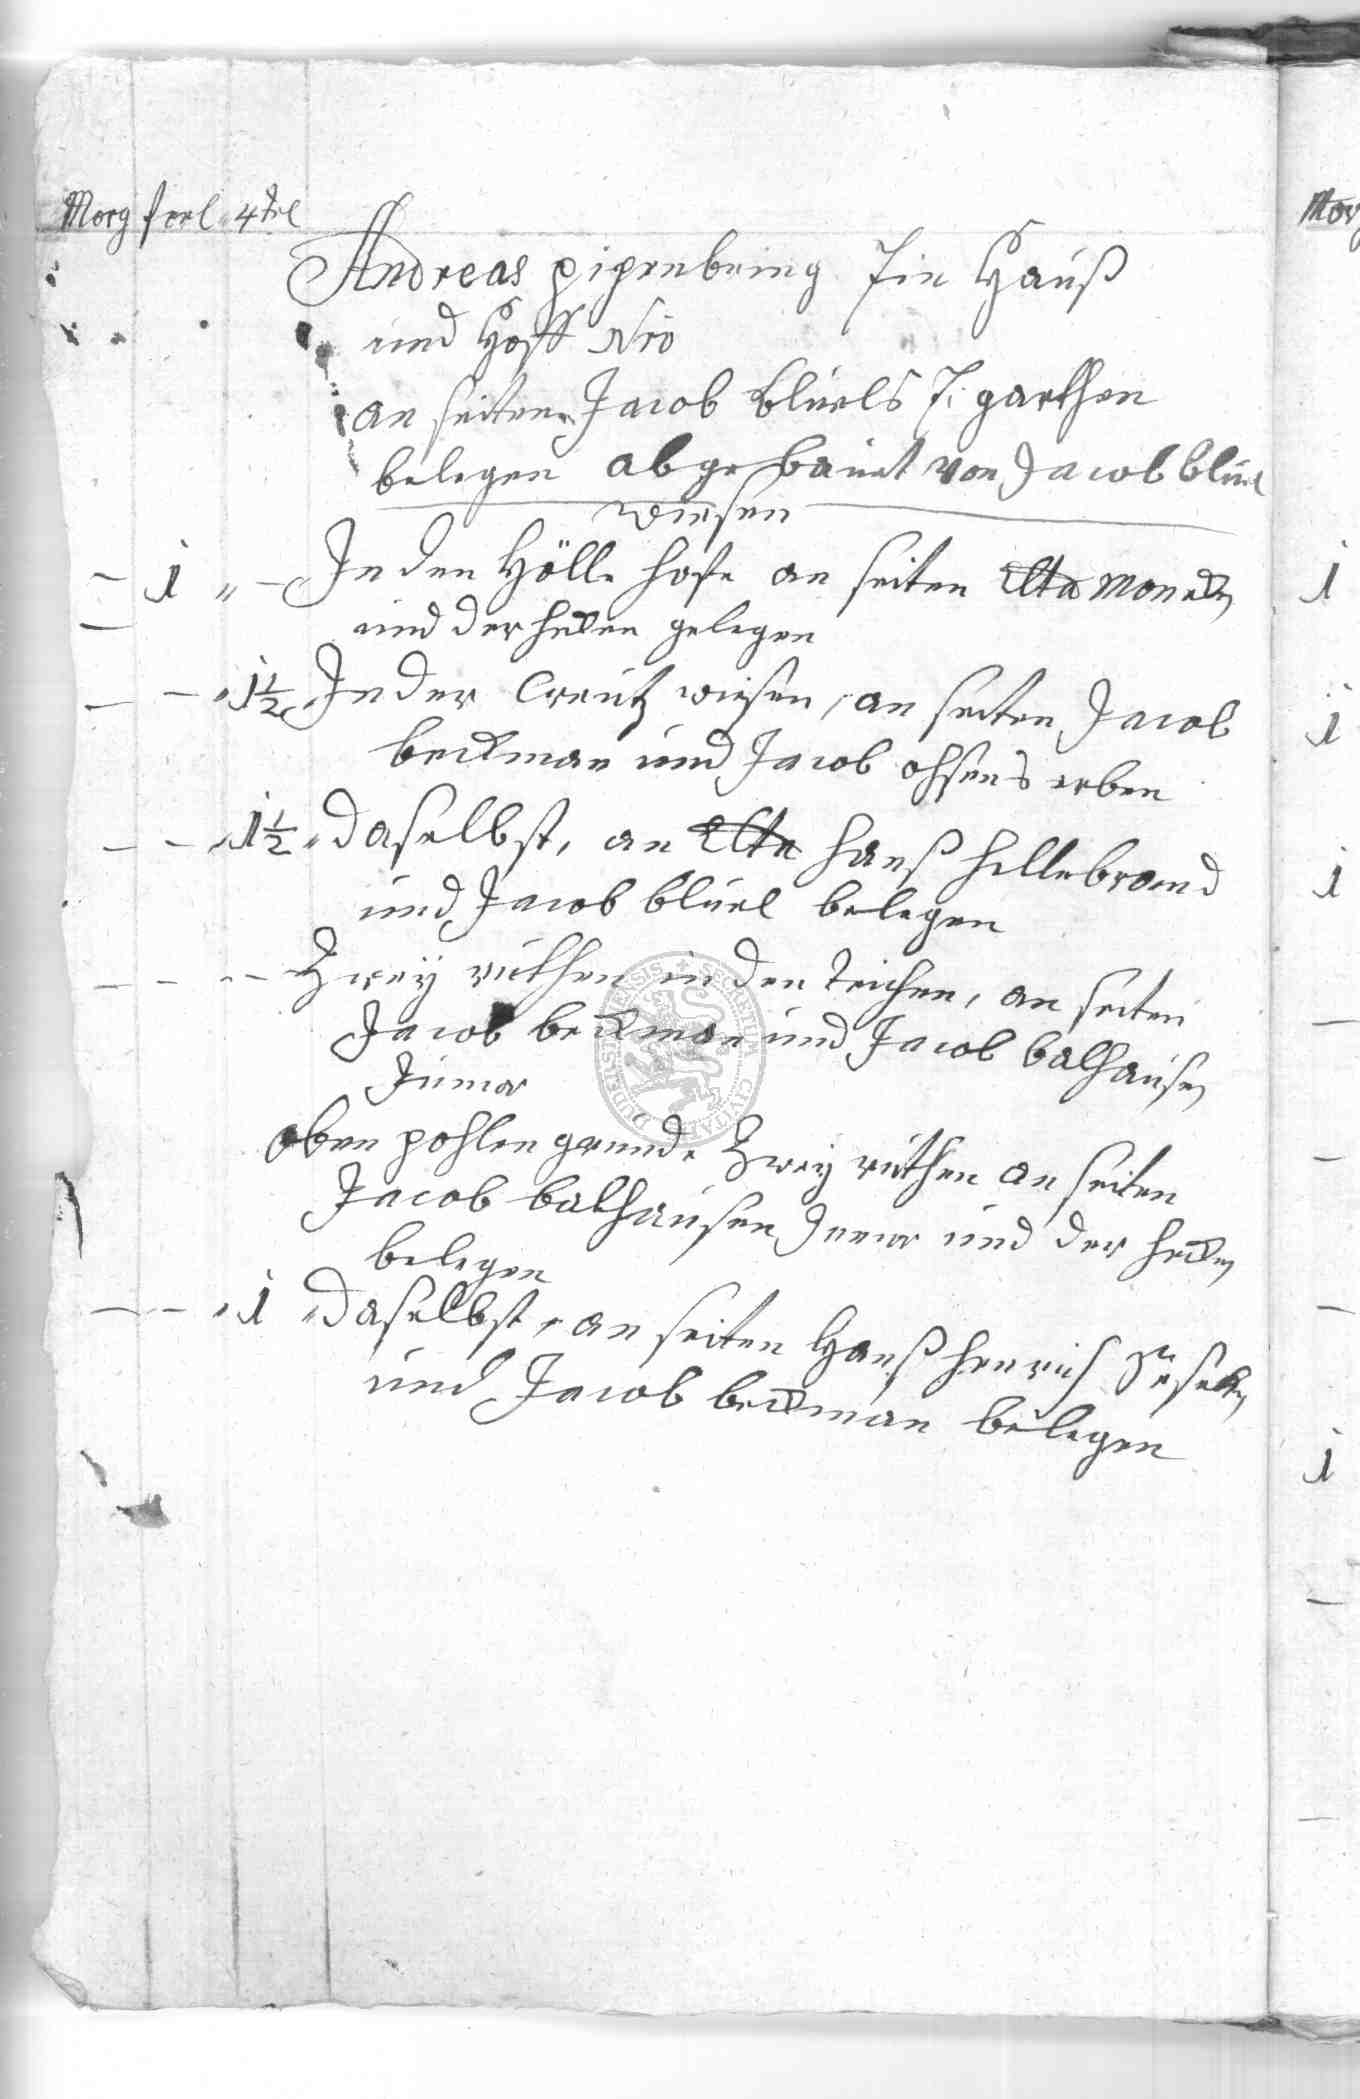 Morg ferl 4tel
Andreas pipenbring Ein Hauß
und Hoff No
an seiten Jacob Bluels garthen
belegen abgebauet von Jacob bluel
wiesen
1 In den Hölle hofe an seiten
und der hecken gelegen
1½ In der Creutz wiesen, an seiten Jacob
beckman und Jacob ohsens erben
1½ Daselbst, an hanß hillebrand
und Jacob bluel belegen
Zwey ruthen in den teichen, an seiten
Jacob beckman und Jacob balhausen
Junior
oben pohlen grunde Zwey ruthen an seiten
Jacob balhausen Junior und der hecken
belegen
1 Daselbst, an seiten Hanß henrich
und Jacob beckman belegen
Morg
1
1
1
1